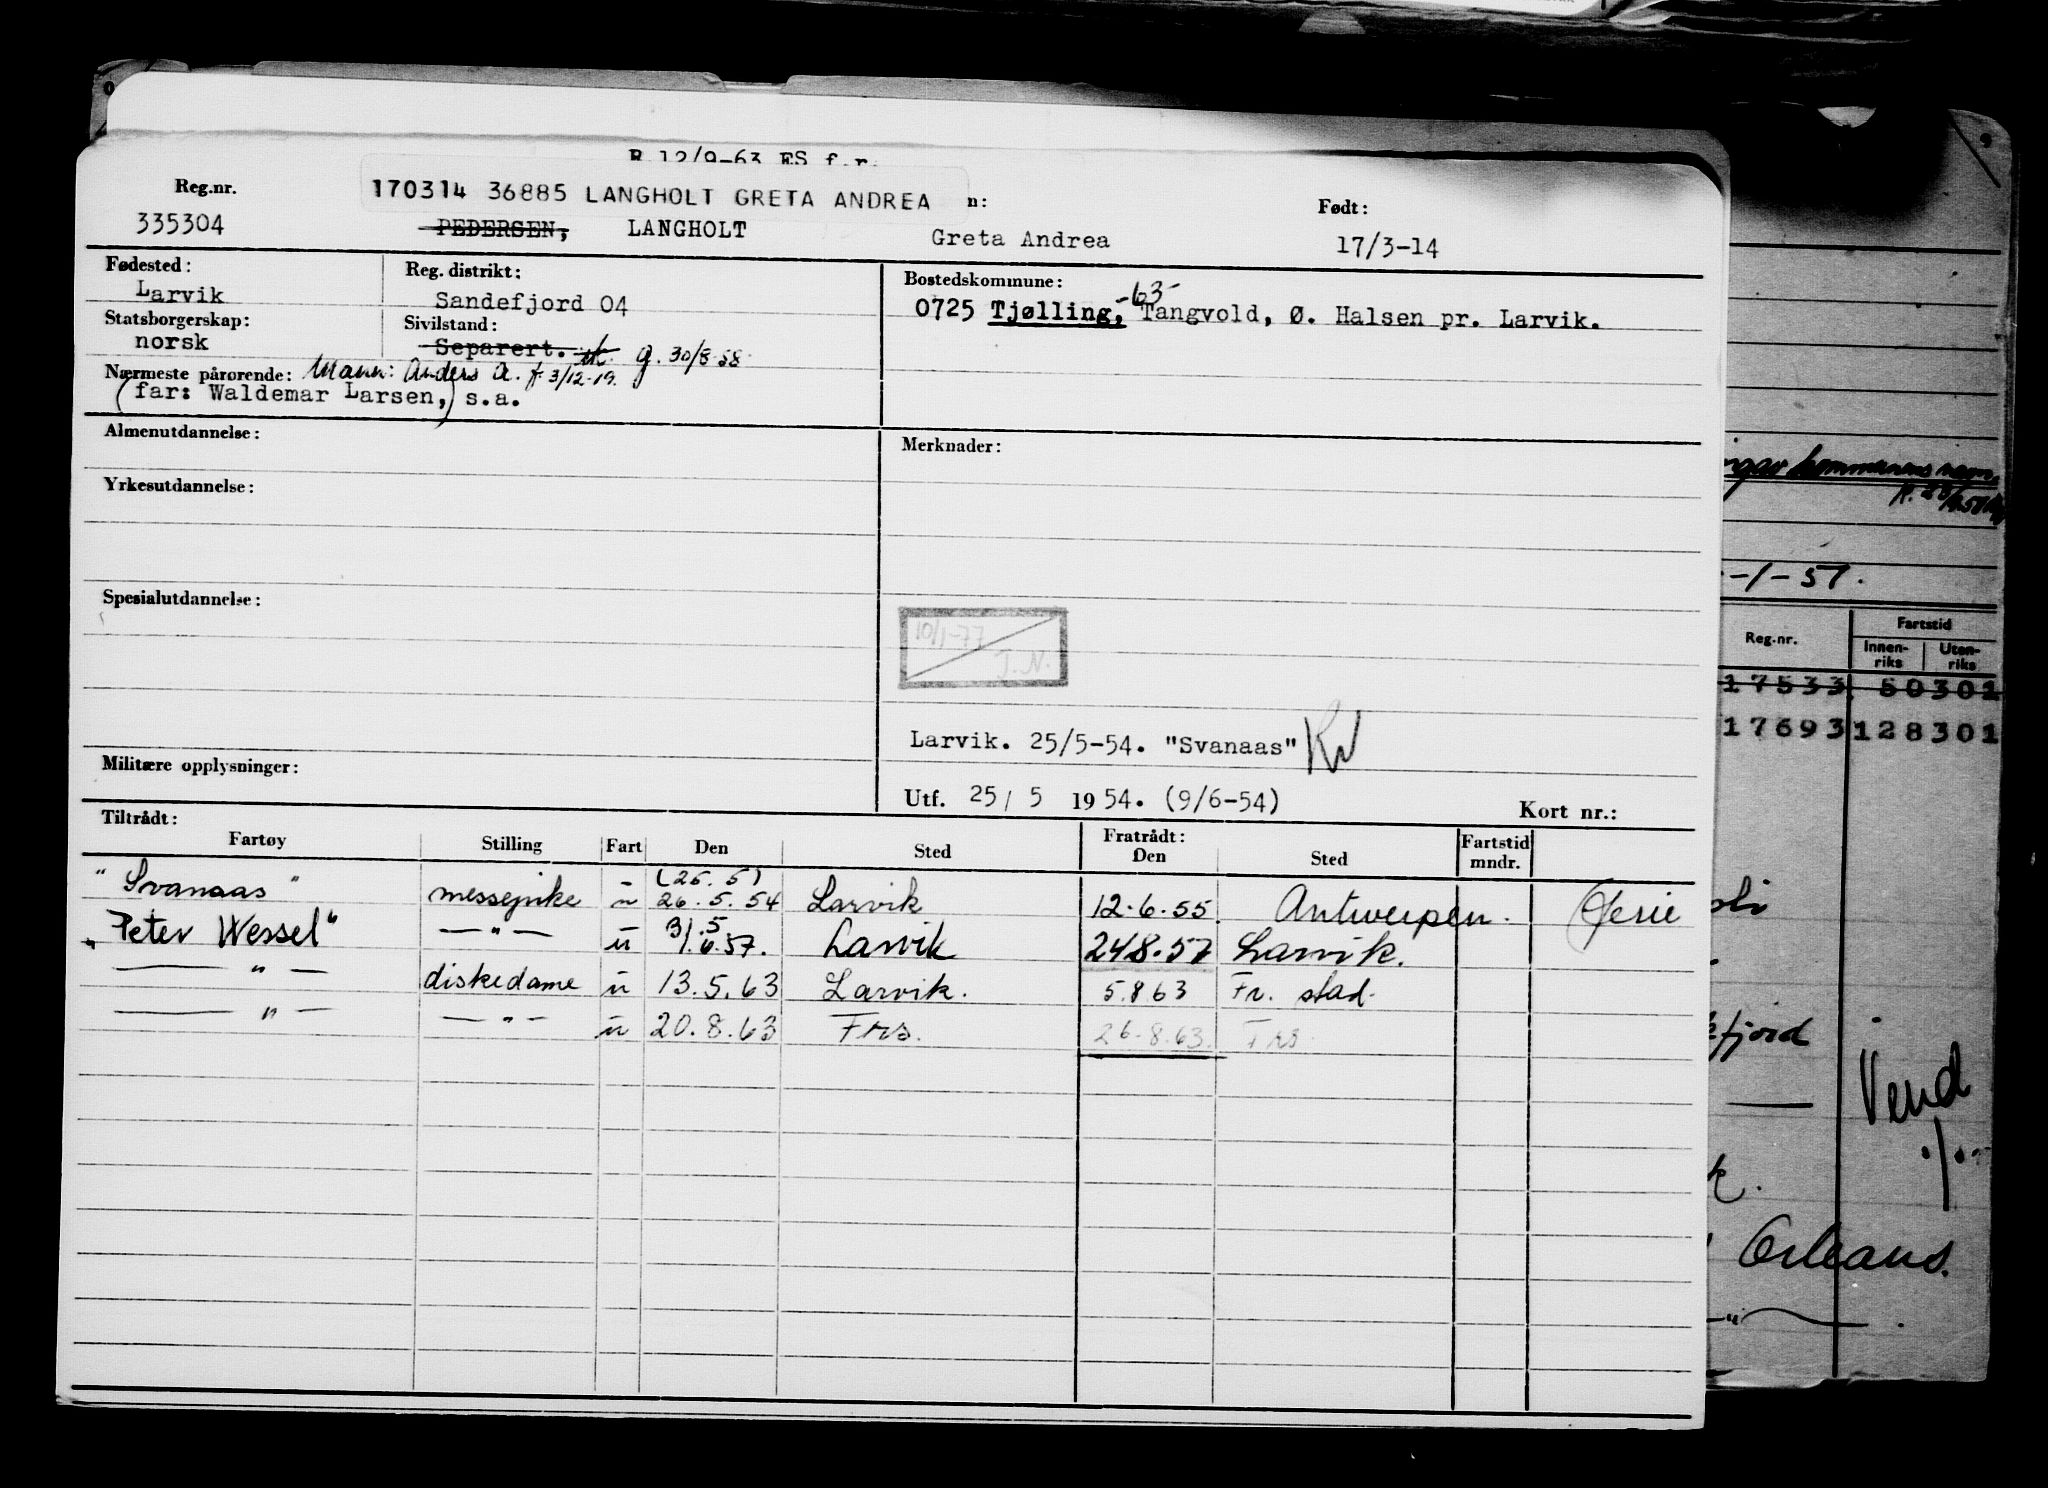 R 12/9-63 ES f.r.
Reg.nr.
170314 36885 LANGHOLT GRETA ANDREA n:
Født:
335304 PEDERSEN, LANGHOLT Greta Andrea 17/3-14
Fødested: Reg. distrikt: Bostedskommune:
Larvik Sandefjord 04 0725 Tjølling, -63- Tangvold, Ø. Halsen pr. Larvik.
Statsborgerskap: Sivilstand:
norsk Separert. g. 30/8-58
Nærmeste pårørende: Mann: Anders A. f. 3/12-19.
(far: Waldemar Larsen,) s.a.
Almenutdannelse: Merknader:
Yrkesutdannelse:
Spesialutdannelse:
10/1-77
J.N.
Larvik. 25/5-54. "Svanaas"
Militære opplysninger:
Utf. 25/ 5 1954. (9/6-54) Kort nr.:
Tiltrådt: Fratrådt:
Fartøy Stilling Fart Den Sted Den Sted Fartstid mndr.
(25.5)
"Svanaas" messepike u 26.5.54 Larvik 12.6.55. Antwerpen.
31.5
"Peter Wessel" —"— u 1.6.57. Larvik 24.8.57 Larvik.
—"— diskedame u 13.5.63 Larvik. 5.8.63 Fr. stad.
—"— —"— u 20.8.63 Frs. 26-8.63. Frs
kommunens navn
-1-57.
Reg.nr. Fartstid
Innen-riks Uten-riks
17533 50301
17693 128301
fjord
Vend
Orleans.
—"—